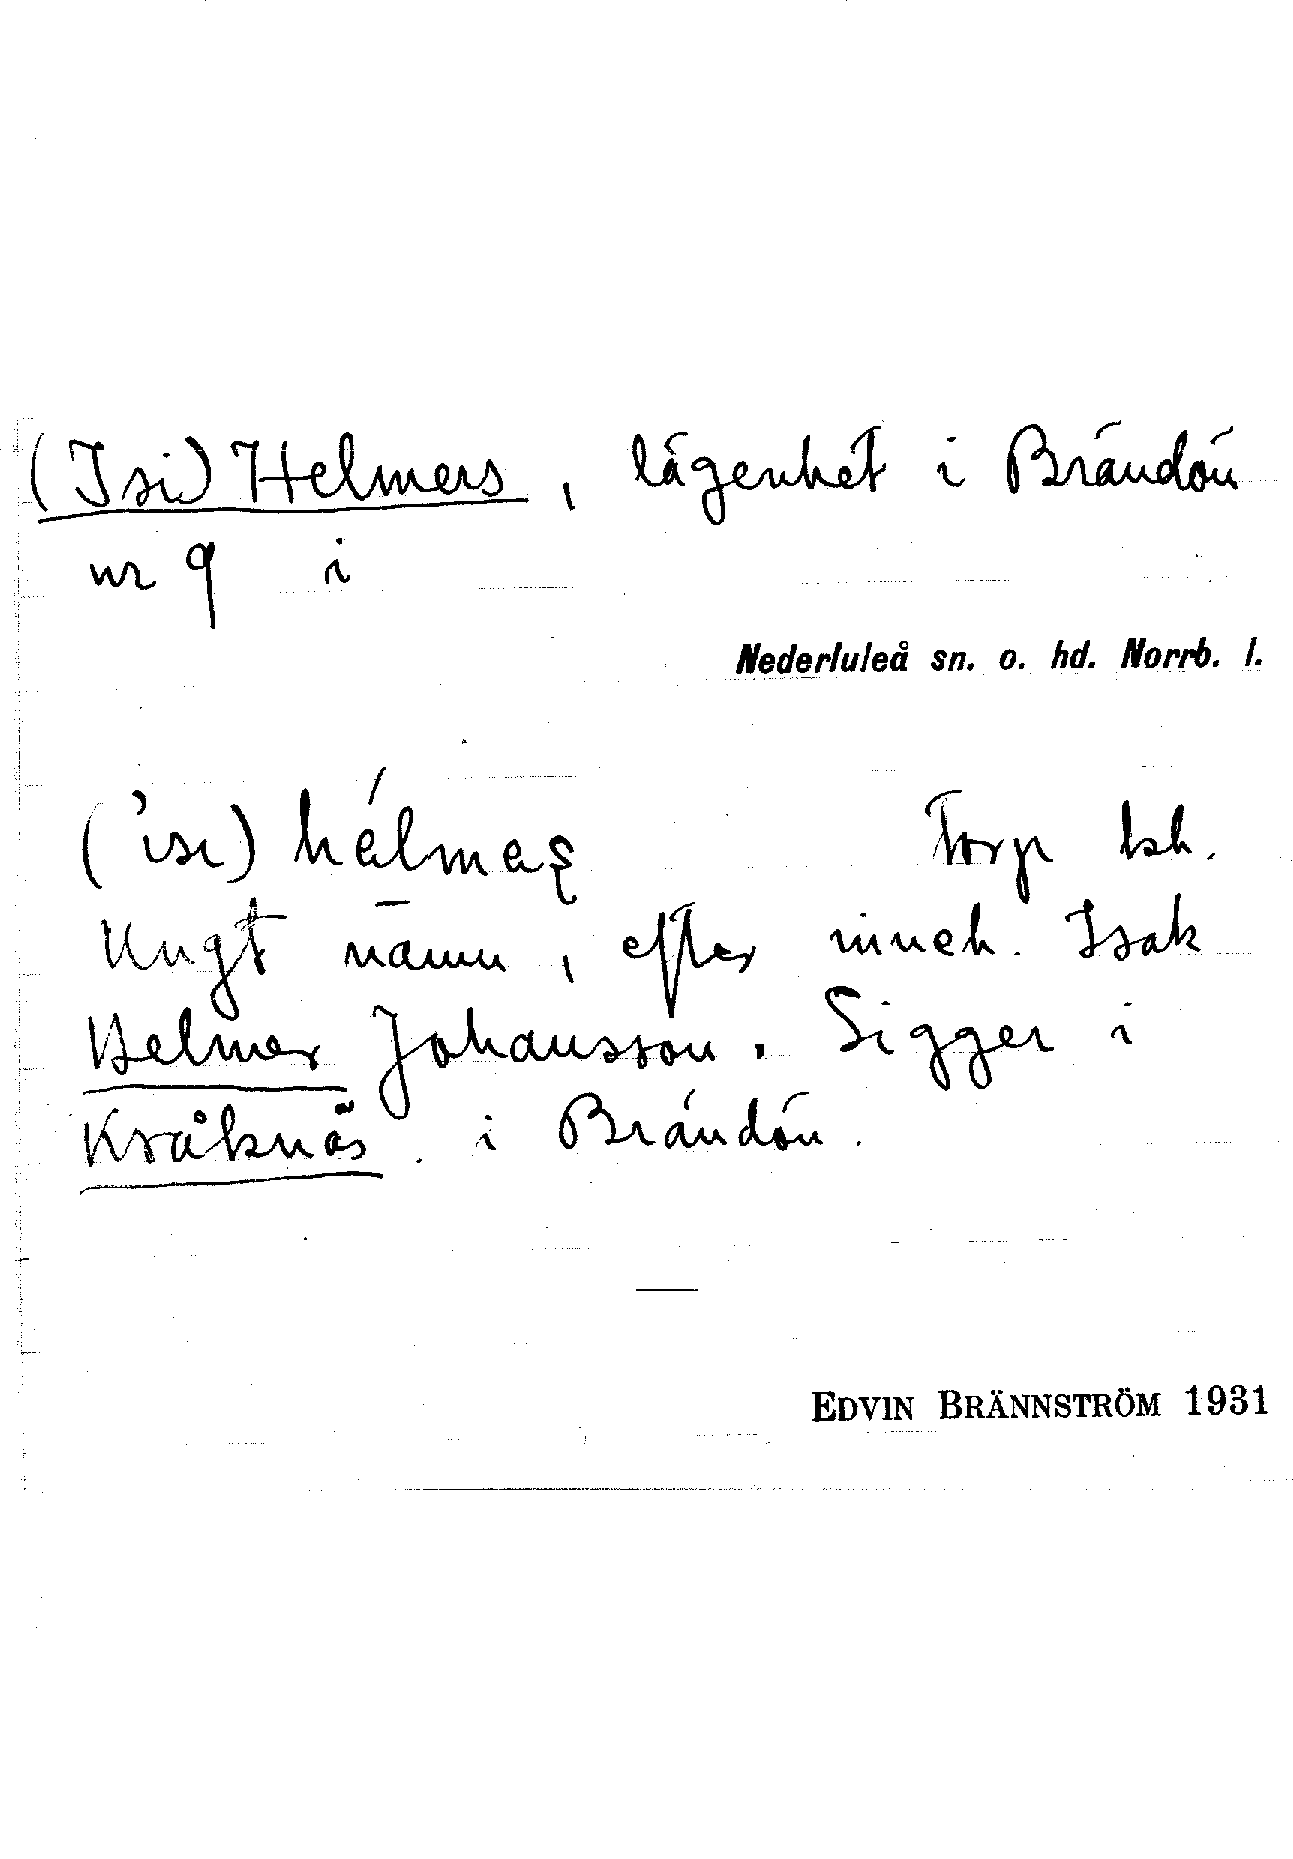 (Isi) Helmers, lägenhet i Brändön
nr 9 i
Nederluleå sn. o. hd. Norrb. l.
('isi) hélmeʂ Torp bsk.
Ungt namn, efter inneh. Isak
Helmer Johansson. Sigger i
Kråknäs. i Brändön.
EDVIN BRÄNNSTRÖM 1931